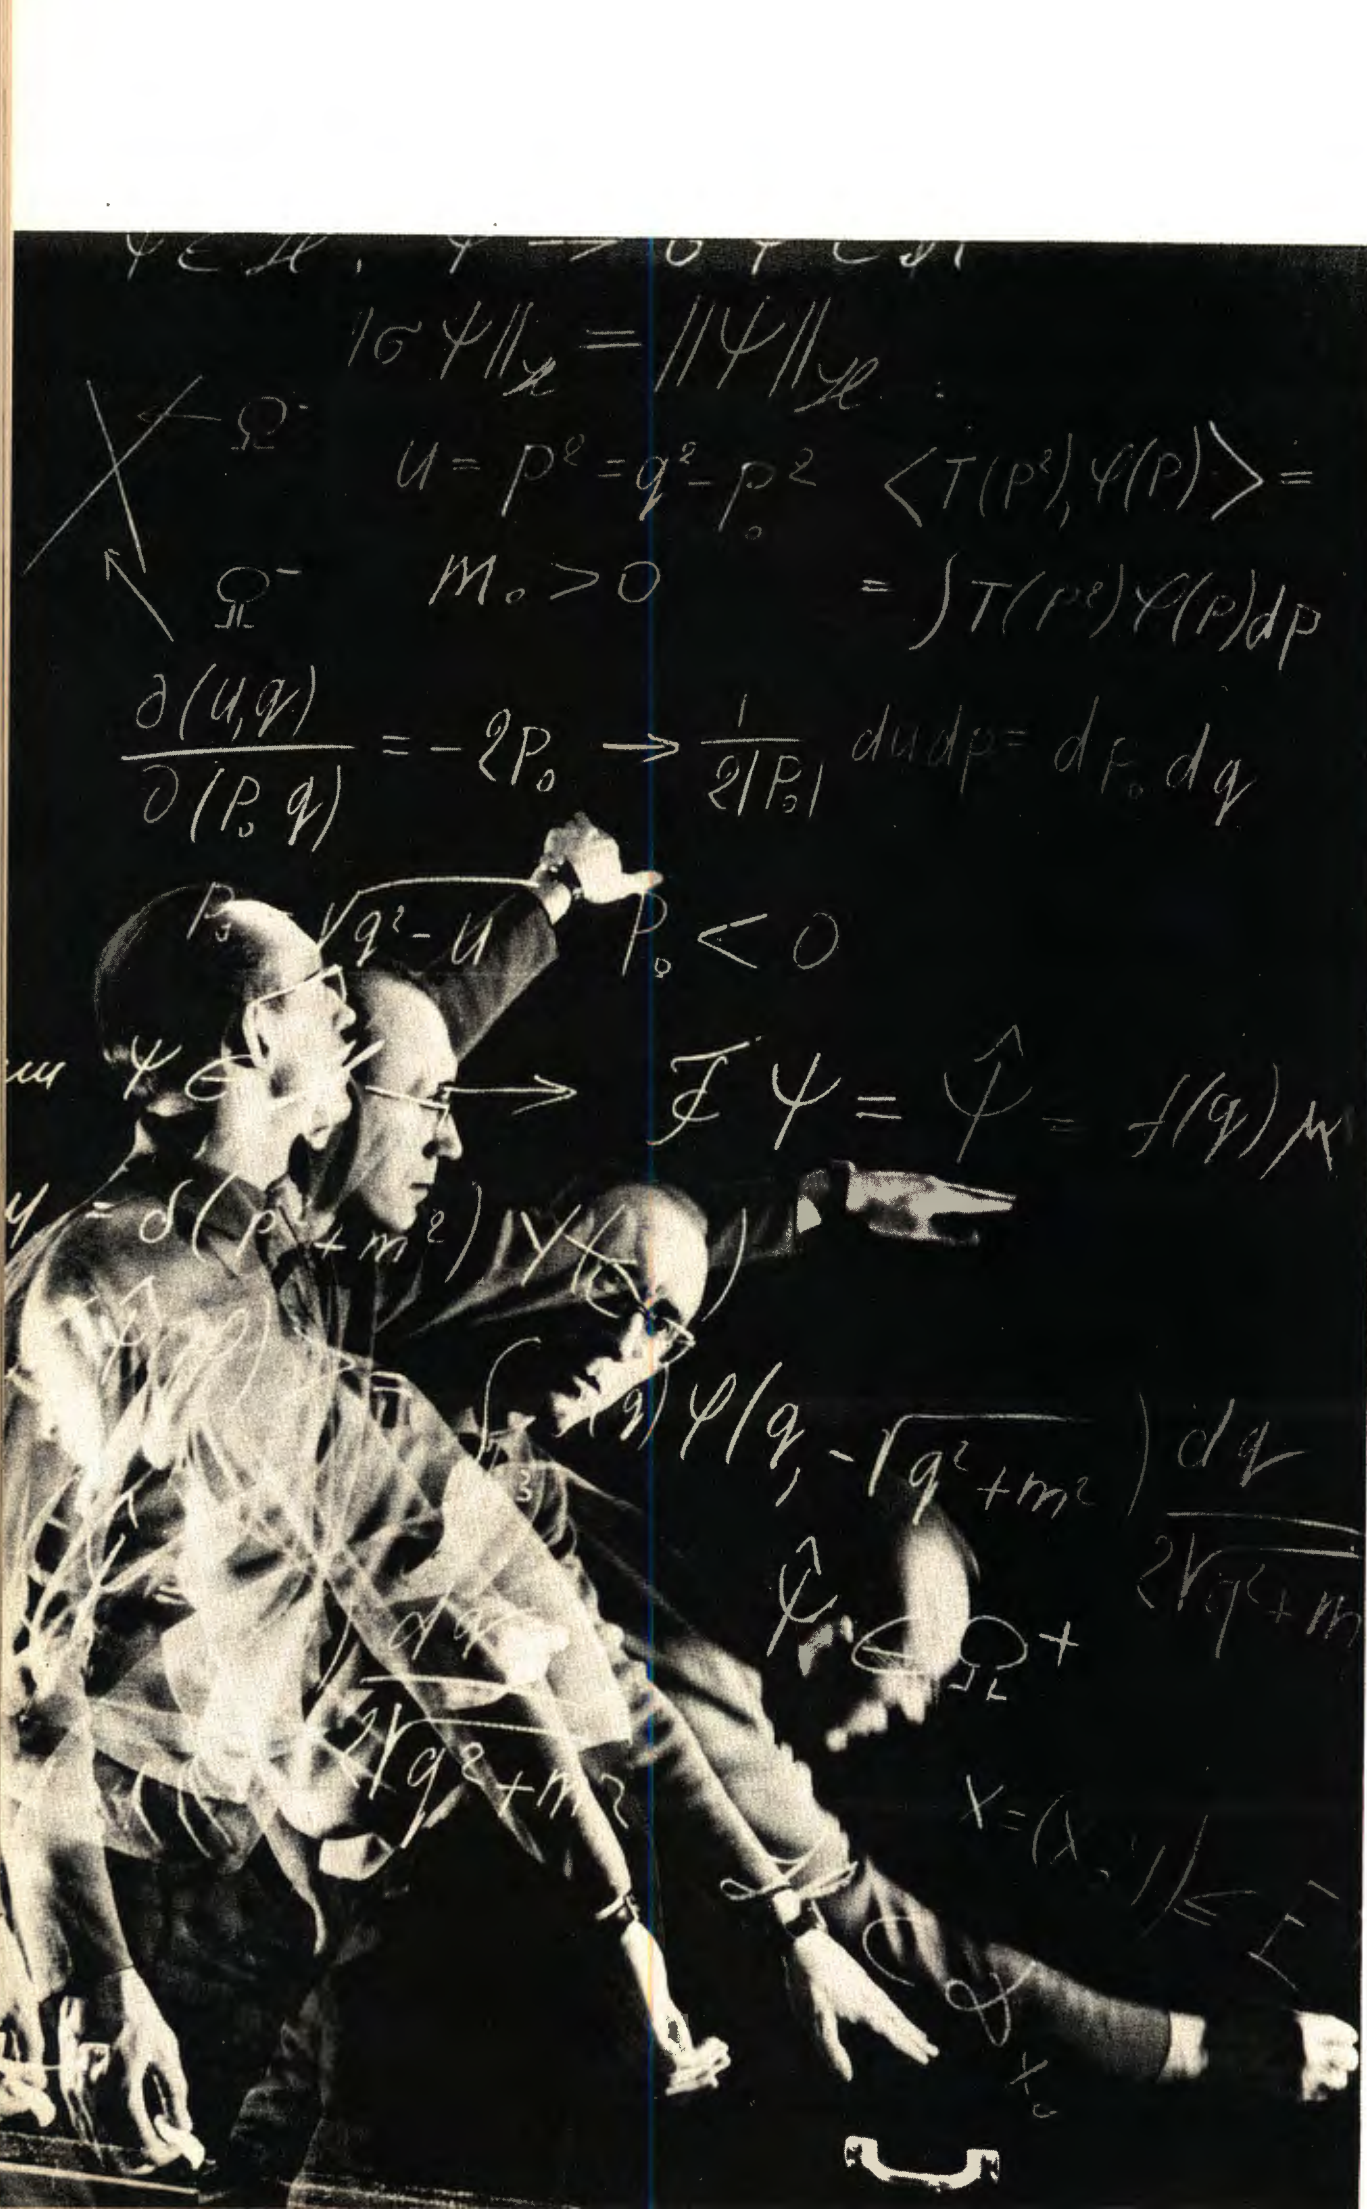 σΨ‖_ℋ = ‖Ψ‖_ℋ
Ω⁻
u = p² = q² - p₀² ⟨T(p²), φ(p)⟩ =
Ω⁻ m₀ > 0 = ∫T(p²)φ(p)dp
∂(u,q)/∂(p₀ q) = -2p₀ → 1/2|p₀| dudp = dp₀ dq
√q² - u p₀ < 0
Ψ ∈ → ℱΨ = Ψ̂ = f(q)μ
= δ(p² + m²) Y( )
∫ (q) φ(q, -√q²+m²) dq/2√q²+m
Ψ̂ ∈ Ω⁺
dq/2√q²+m²
x =